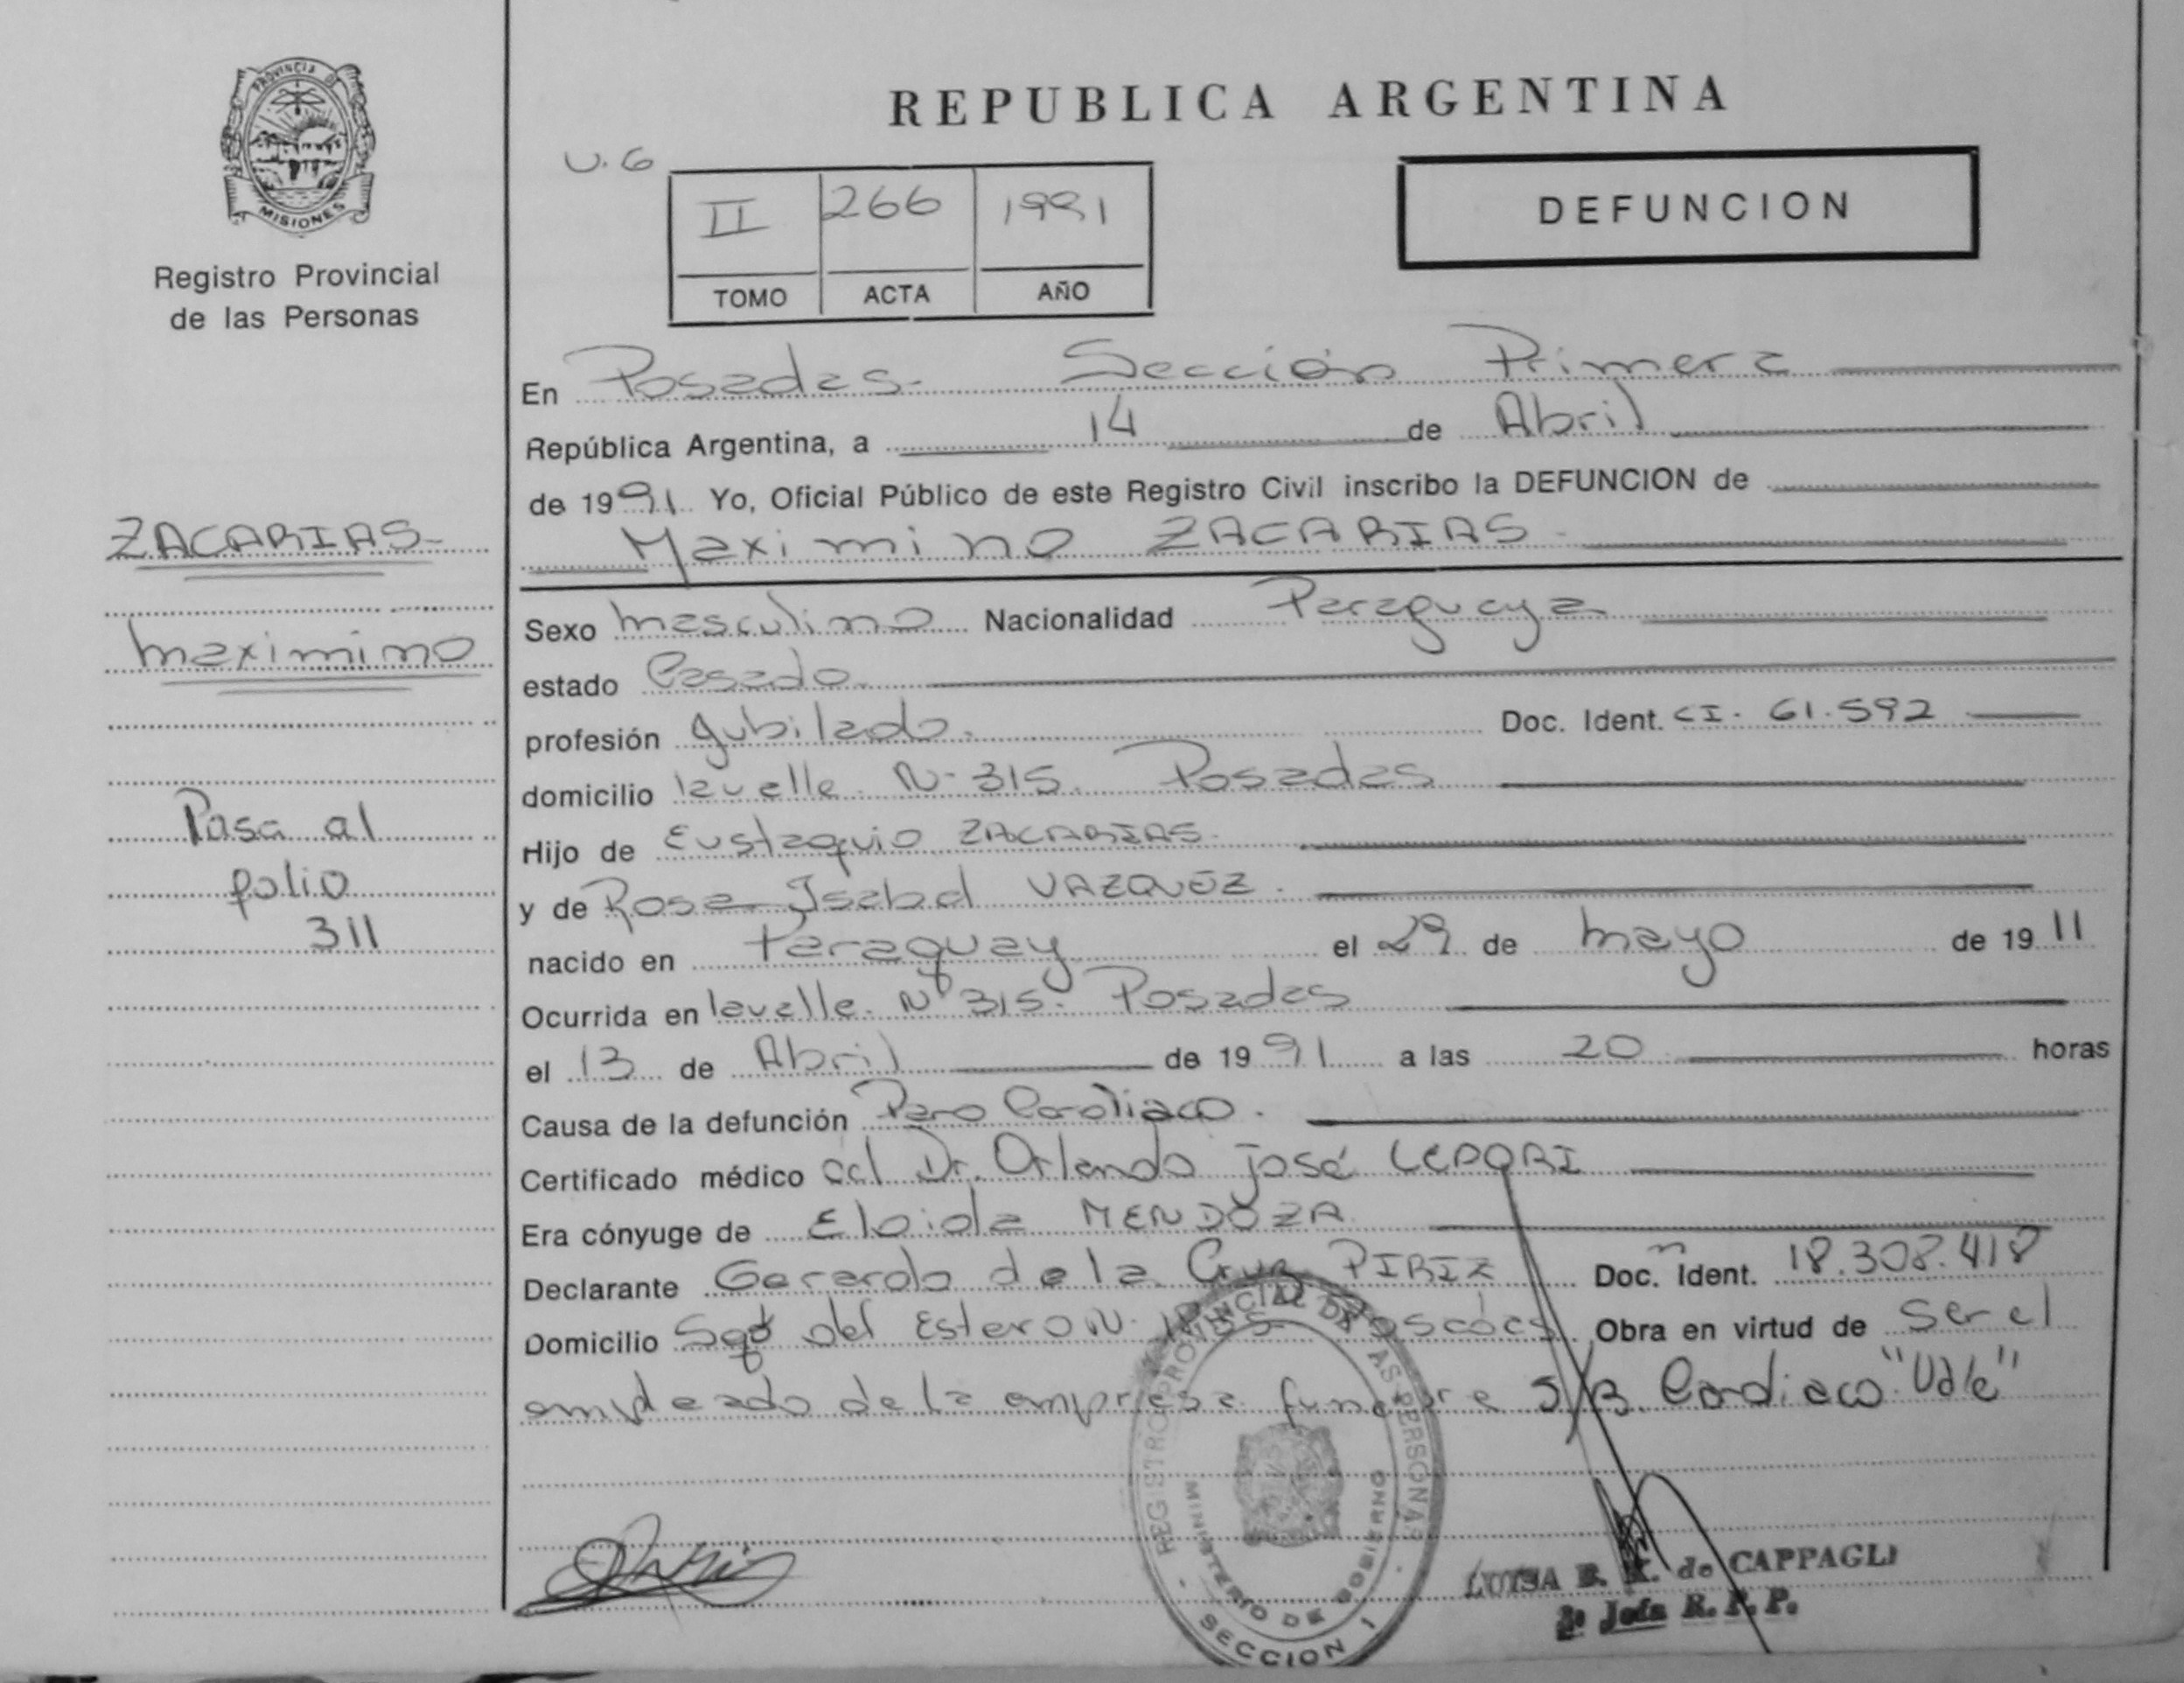 PROVINCIA DE
MISIONES
Registro Provincial
de las Personas
ZACARIAS-
Maximino
Pasa al
folio
311
REPUBLICA ARGENTINA
U. 6
II 266 1991
TOMO ACTA AÑO
DEFUNCION
En Posadas- Sección Primera
República Argentina, a 14 de Abril
de 1991 Yo, Oficial Público de este Registro Civil inscribo la DEFUNCION de
Maximino ZACARIAS-
Sexo masculino Nacionalidad Paraguaya
estado Casado
profesión Jubilado. Doc. Ident. CI- 61.592
domicilio lavalle N- 315. Posadas
Hijo de Eustaquio ZACARIAS-
y de Rosa Isabel VAZQUEZ.
nacido en Paraguay el 29 de mayo de 1911
Ocurrida en lavalle. Nº 315. Posadas
el 13 de Abril de 1991 a las 20 horas
Causa de la defunción Paro Cardiaco.
Certificado médico del Dr. Orlando josé LEPORI
Era cónyuge de Eloida MENDOZA
Declarante Gerardo de la Cruz PIRIZ Doc. Ident. 18.308.418
Domicilio Sgo del Estero N- Posadas Obra en virtud de ser el
empleado de la empresa funebre S/R. Cardiaco "Vale"
REGISTRO PROVINCIAL DE LAS PERSONAS
MINISTERIO DE GOBIERNO
SECCION 1
LUISA B. K. de CAPPAGLI
2ª Jefa R. P. P.